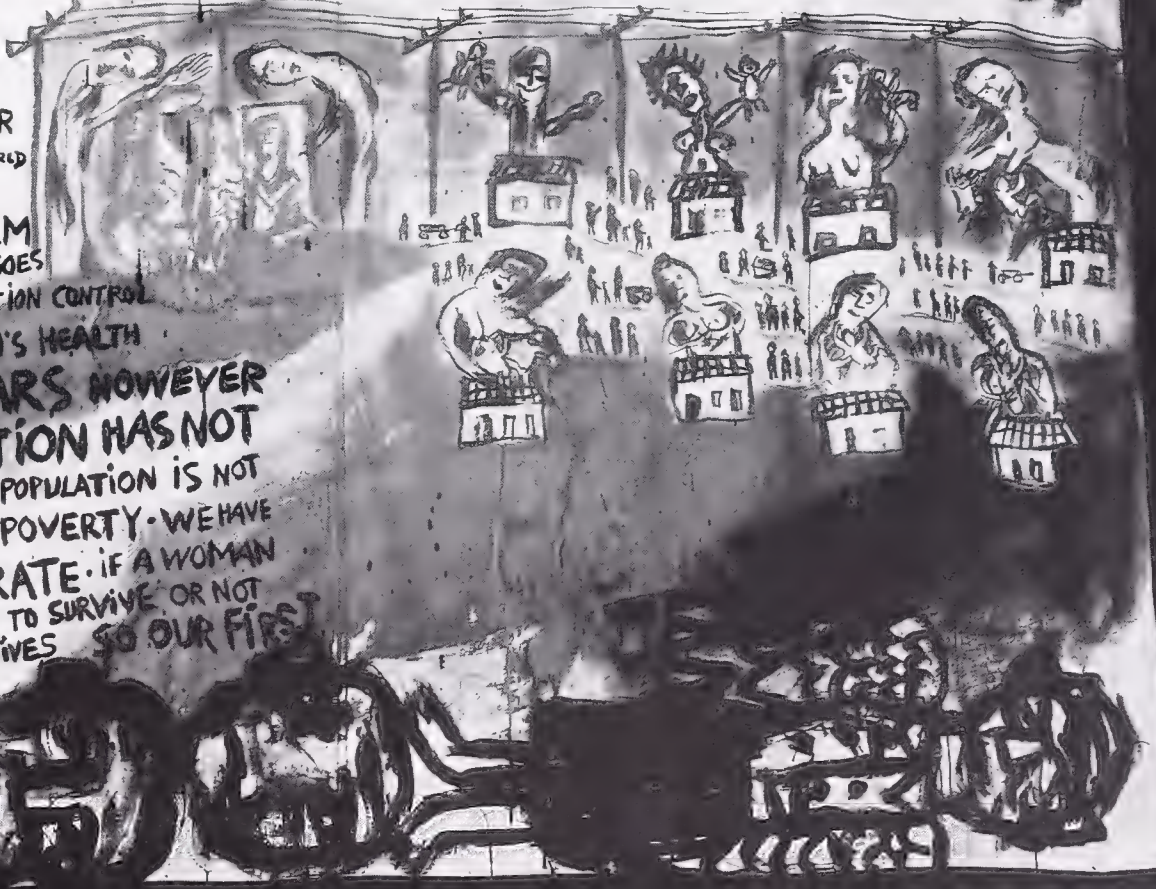 R
M
GOES
TION CONTROL
'S HEALTH
ARS HOWEVER
TION HAS NOT
POPULATION IS NOT
POVERTY · WE HAVE
RATE · iF A WOMAN
TO SURViVE OR NOT
iVES SO OUR FiRST